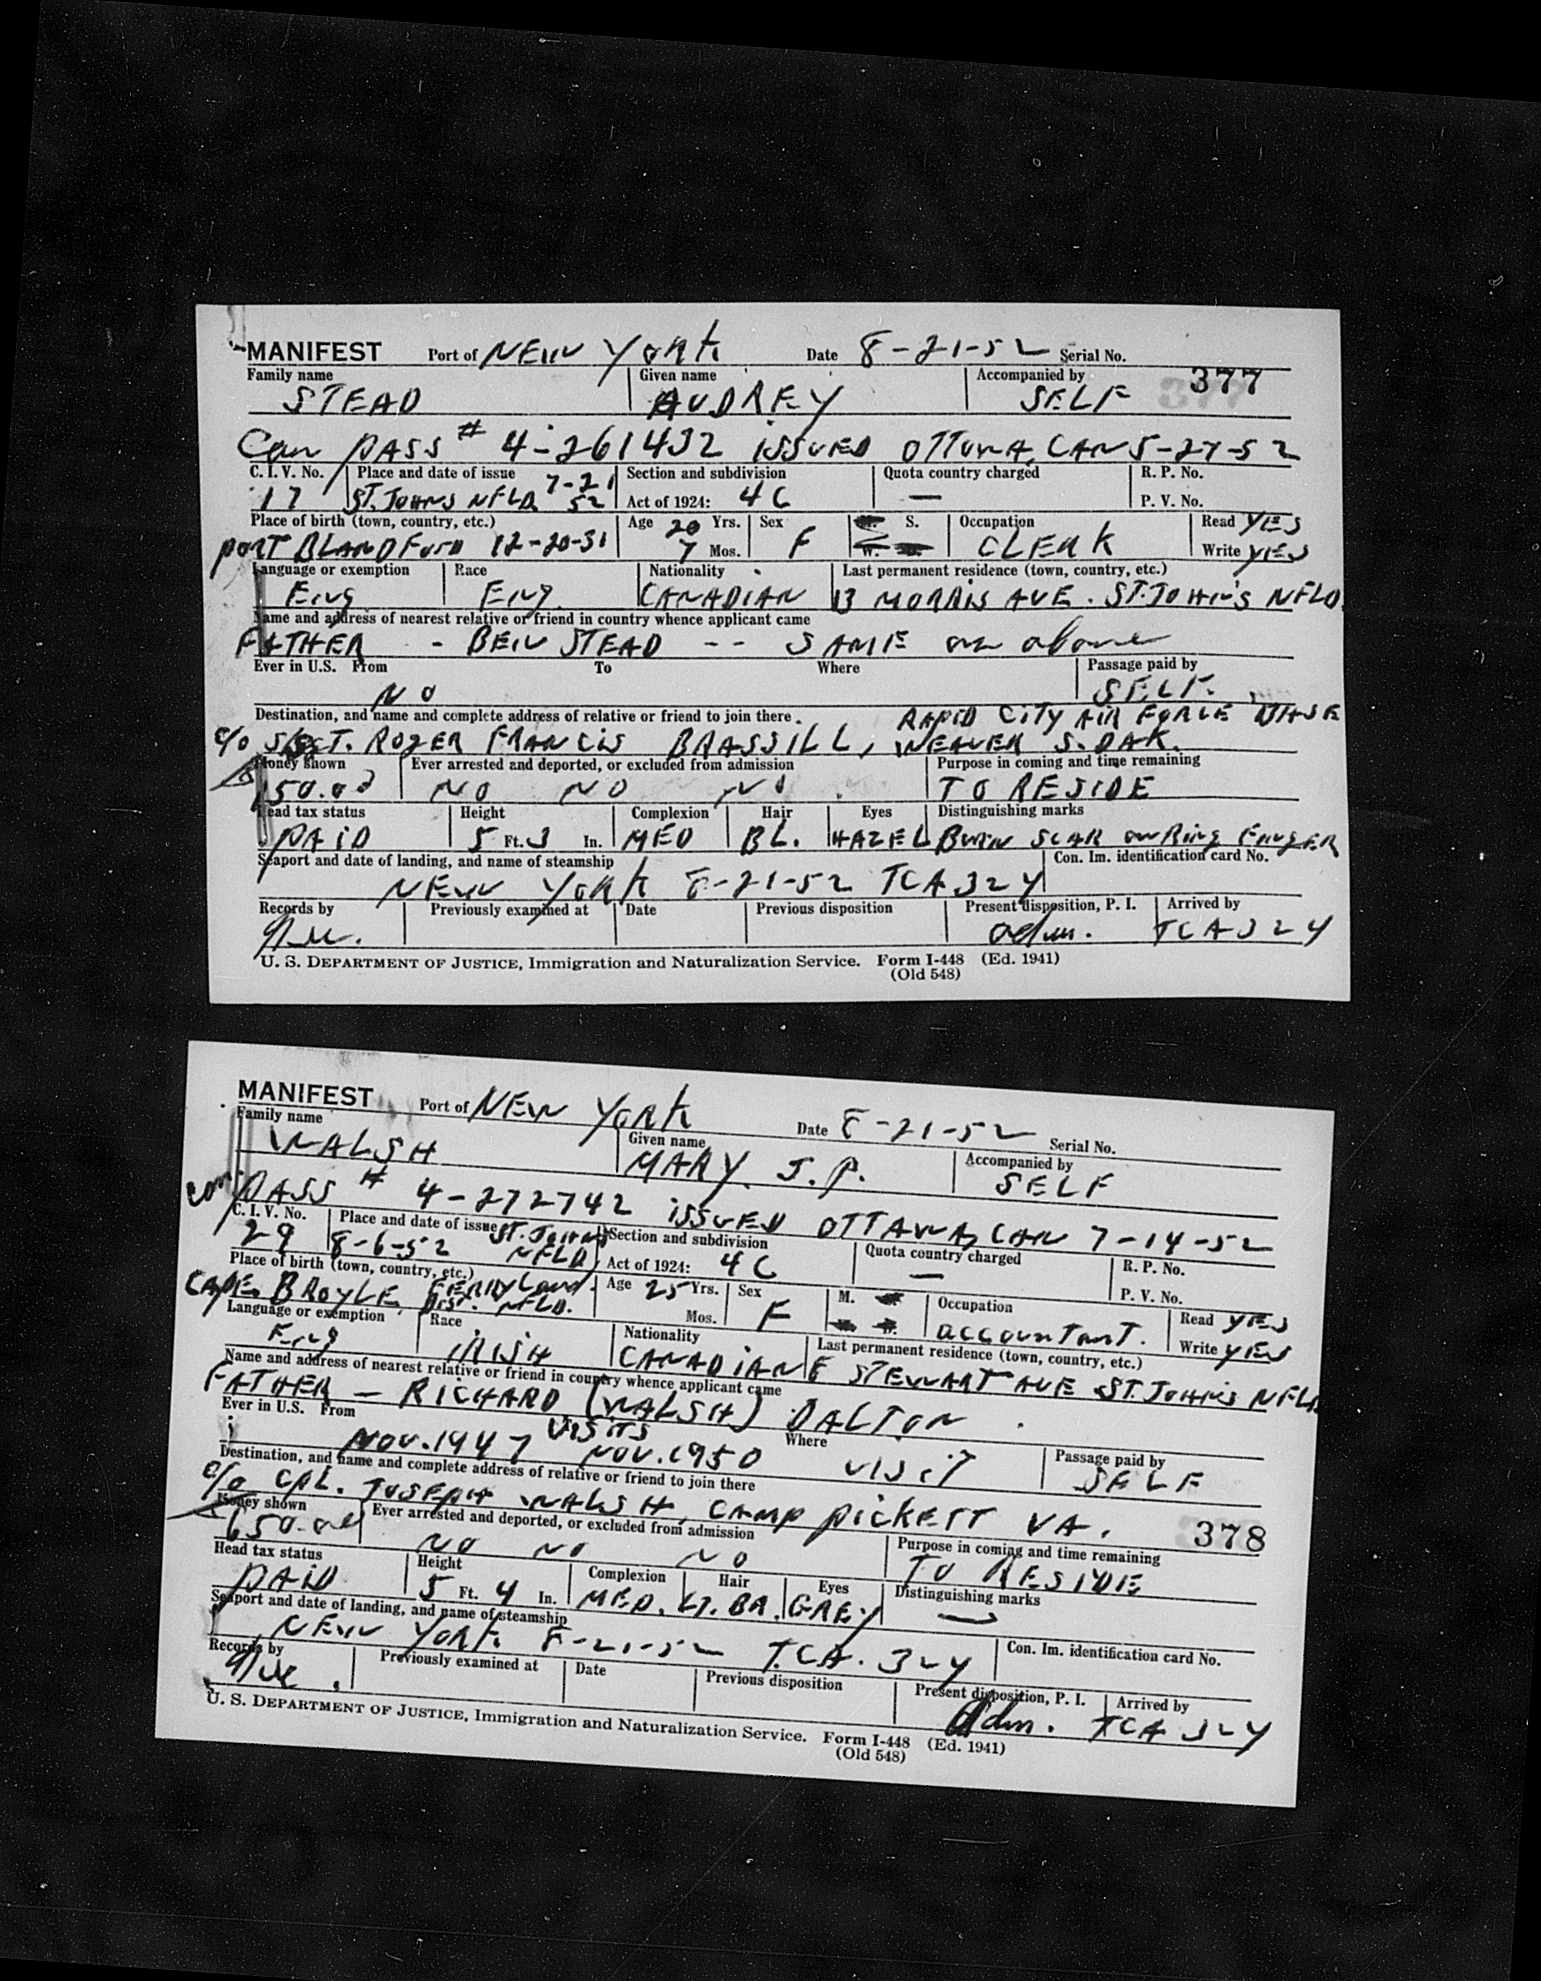 MANIFEST Port of NEW YORK Date 8-21-52 Serial No.
Family name Given name Accompanied by 377
STEAD AUDREY SELF
Can PASS # 4-261432 ISSUED OTTAWA, CAN 5-27-52
C. I. V. No. Place and date of issue 7-21 Section and subdivision Quota country charged R. P. No.
17 ST. JOHNS NFLD. 52 Act of 1924: 4C — P. V. No.
Place of birth (town, country, etc.) Age 20 Yrs. Sex S. Occupation Read YES
PORT BLANDFORD 12-20-31 7 Mos. F W. CLERK Write YES
Language or exemption Race Nationality Last permanent residence (town, country, etc.)
Eng Eng. CANADIAN 13 MORRIS AVE. ST. JOHN'S NFLD.
Name and address of nearest relative or friend in country whence applicant came
FATHER - BEN STEAD -- SAME as above
Ever in U.S. From To Where Passage paid by
NO SELF.
Destination, and name and complete address of relative or friend to join there. RAPID CITY AIR FORCE BASE
c/o ROGER FRANCIS BRASSILL, WEAVER S. DAK.
Money shown Ever arrested and deported, or excluded from admission Purpose in coming and time remaining
50.00 NO NO NO TO RESIDE
Head tax status Height Complexion Hair Eyes Distinguishing marks
PAID 5 Ft. 3 In. MED BL. HAZEL BURN SCAR on Ring FINGER
Seaport and date of landing, and name of steamship Con. Im. identification card No.
NEW YORK 8-21-52 TCA 324
Records by Previously examined at Date Previous disposition Present disposition, P. I. Arrived by
adm. TCA 324
U. S. DEPARTMENT OF JUSTICE, Immigration and Naturalization Service. Form I-448 (Ed. 1941)
(Old 548)
MANIFEST Port of NEW YORK Date 8-21-52 Serial No.
Family name Given name Accompanied by
WALSH MARY. J. P. SELF
Can PASS # 4-272742 ISSUED OTTAWA, CAN 7-14-52
C. I. V. No. Place and date of issue ST. JOHNS Section and subdivision Quota country charged R. P. No.
29 8-6-52 NFLD Act of 1924: 4C — P. V. No.
Place of birth (town, country, etc.) FERRYLand. Age 25 Yrs. Sex M. Occupation Read YES
CAPE BROYLE, DIST. NFLD. Mos. F accounTanT. Write YES
Language or exemption Race Nationality Last permanent residence (town, country, etc.)
Eng IRISH CANADIAN 8 STEWART AVE ST. JOHN'S NFLD
Name and address of nearest relative or friend in country whence applicant came
FATHER — RICHARD (WALSH) DALTON
Ever in U.S. From VISITS Where Passage paid by
NOV. 1947 NOV. 1950 VISIT SELF
Destination, and name and complete address of relative or friend to join there
c/o CPL. JOSEPH WALSH, CAMP PICKETT VA. 378
Money shown Ever arrested and deported, or excluded from admission Purpose in coming and time remaining
NO NO NO TO RESIDE
Head tax status Height Complexion Hair Eyes Distinguishing marks
PAID 5 Ft. 4 In. MED. LT. BR. GREY —
Seaport and date of landing, and name of steamship Con. Im. identification card No.
NEW YORK 8-21-52 T.C.A. 324
Records by Previously examined at Date Previous disposition Present disposition, P. I. Arrived by
Adm. TCA 324
U. S. DEPARTMENT OF JUSTICE, Immigration and Naturalization Service. Form I-448 (Ed. 1941)
(Old 548)